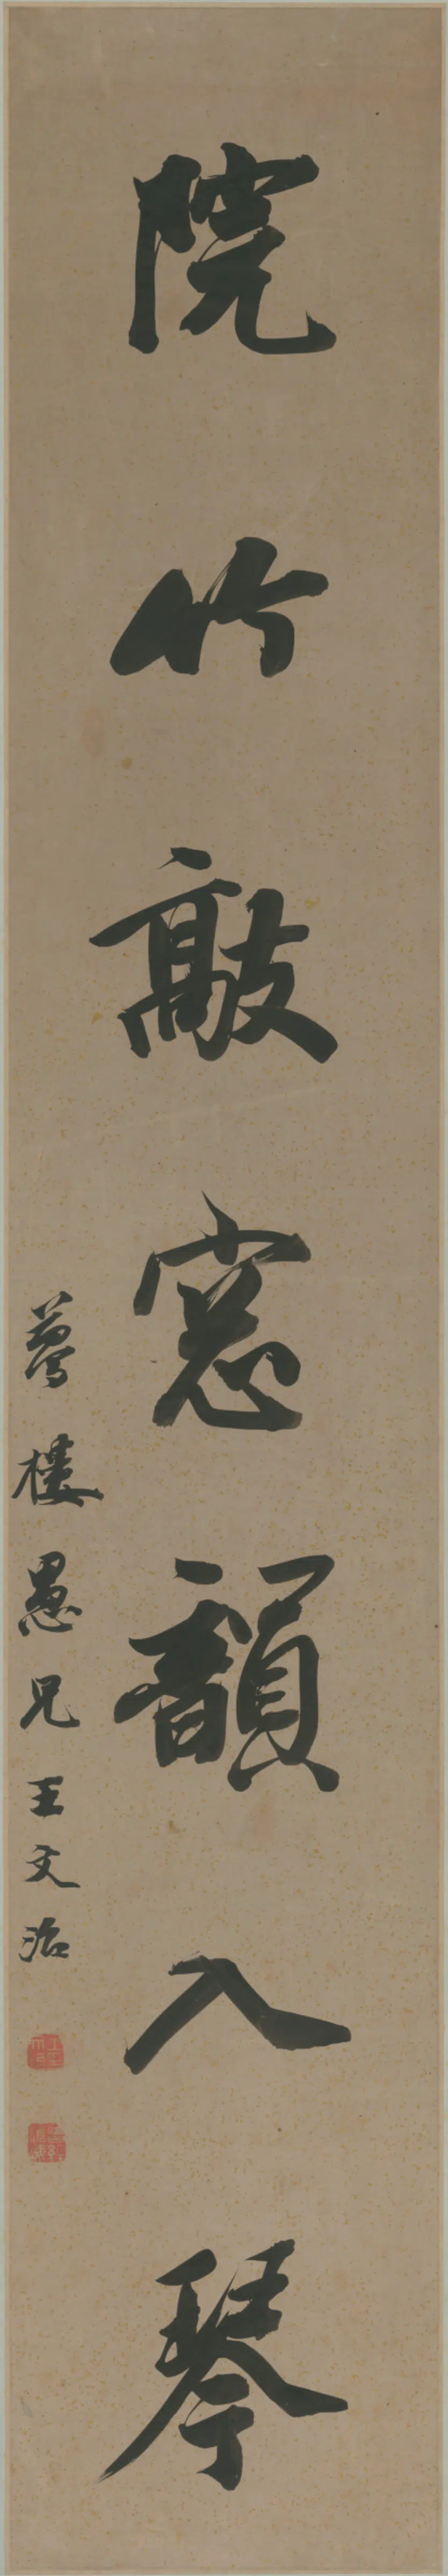 院竹敲窓韻入琴
夢樓愚兄王文治